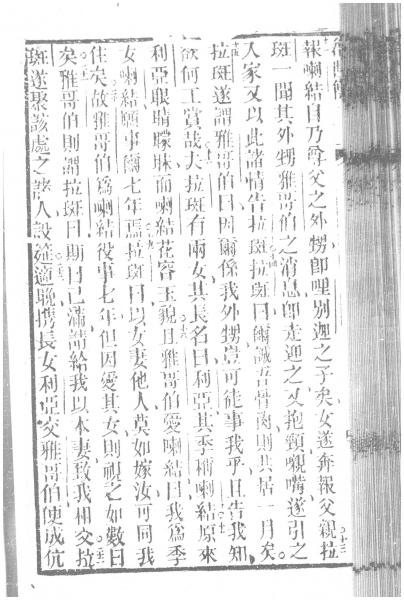 報喇結目乃尊父之外甥卽哩別迦之子矣女遂奔報父親拉
斑一聞其外甥雅哥伯之消息卽走迎之又抱頸嚫嘴遂引之
人家又以此諸情告拉斑拉斑曰爾誠吾骨肉則其居一月矣
拉斑遂謂雅哥伯曰因爾係我外甥豈可徒事我乎且告我知
欲何工賞哉夫拉斑有兩女其長名曰利亞其季稱喇結原來
利亞眼睛矇昧而喇結花容玉貌且雅哥伯愛喇結曰我爲季
女喇結願事爾七年焉拉斑曰以女妻他人莫如嫁汝可同我
住矣故雅哥伯爲喇結役事七年但因愛其女則視之如數日
矣雅哥伯則謂拉斑曰期日已滿請給我以本妻致我相交拉
斑遂聚該處之諸人設筵適晚携長女利亞交雅哥伯使成伉